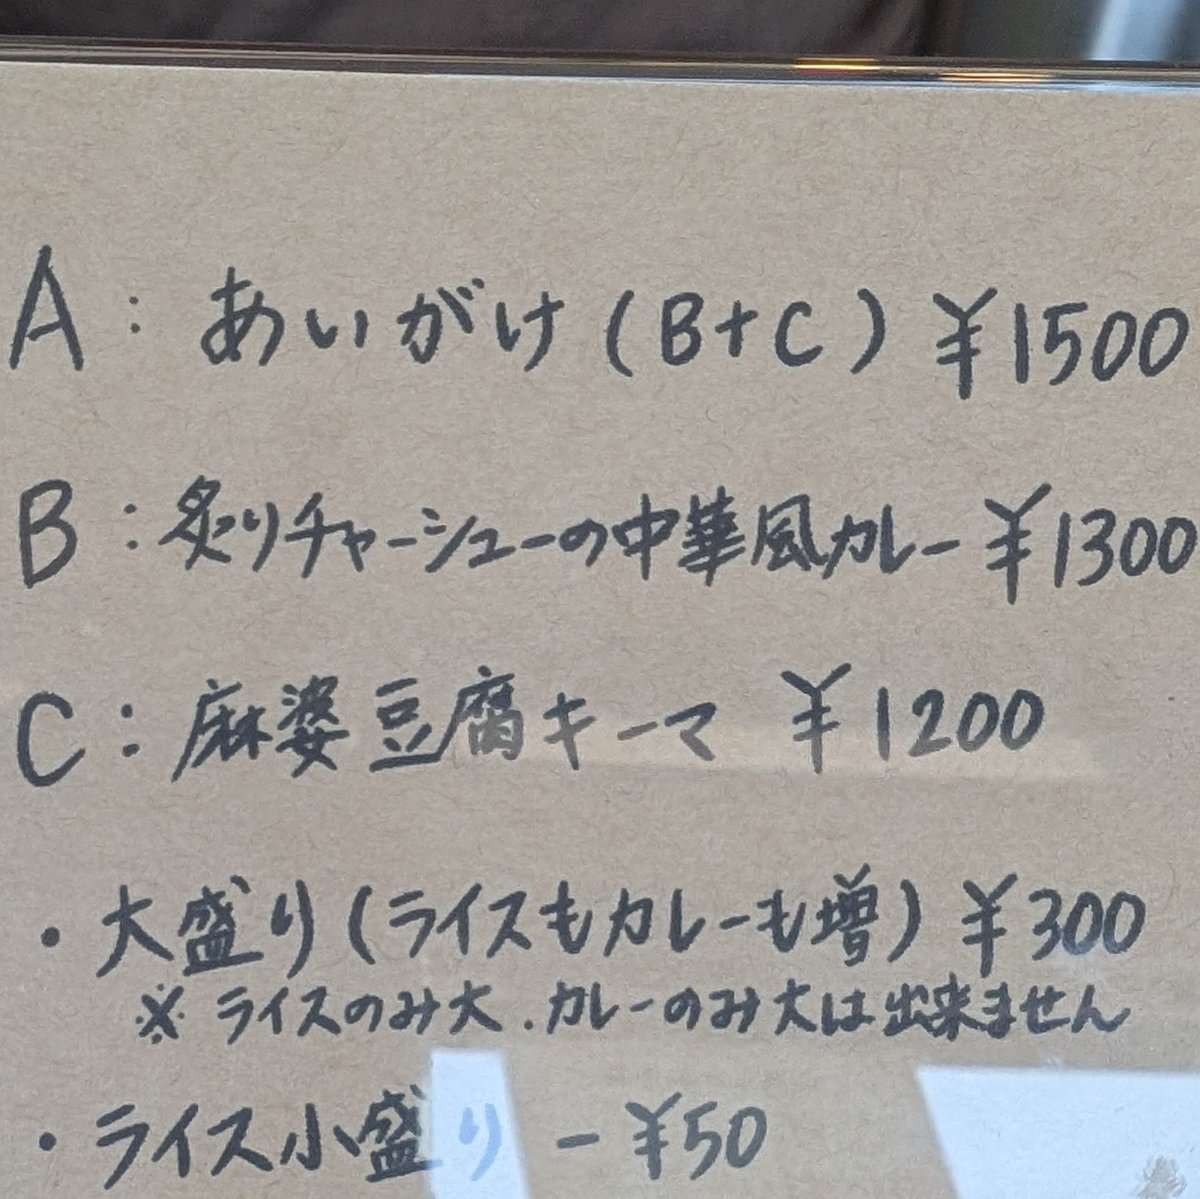 A：あいがけ（B+C）¥1500
B：炙りチャーシューの中華風カレー ¥1300
C：麻婆豆腐キーマ ¥1200
・大盛り（ライスもカレーも増）¥300
※ライスのみ大．カレーのみ大は出来ません
・ライス小盛り －¥50